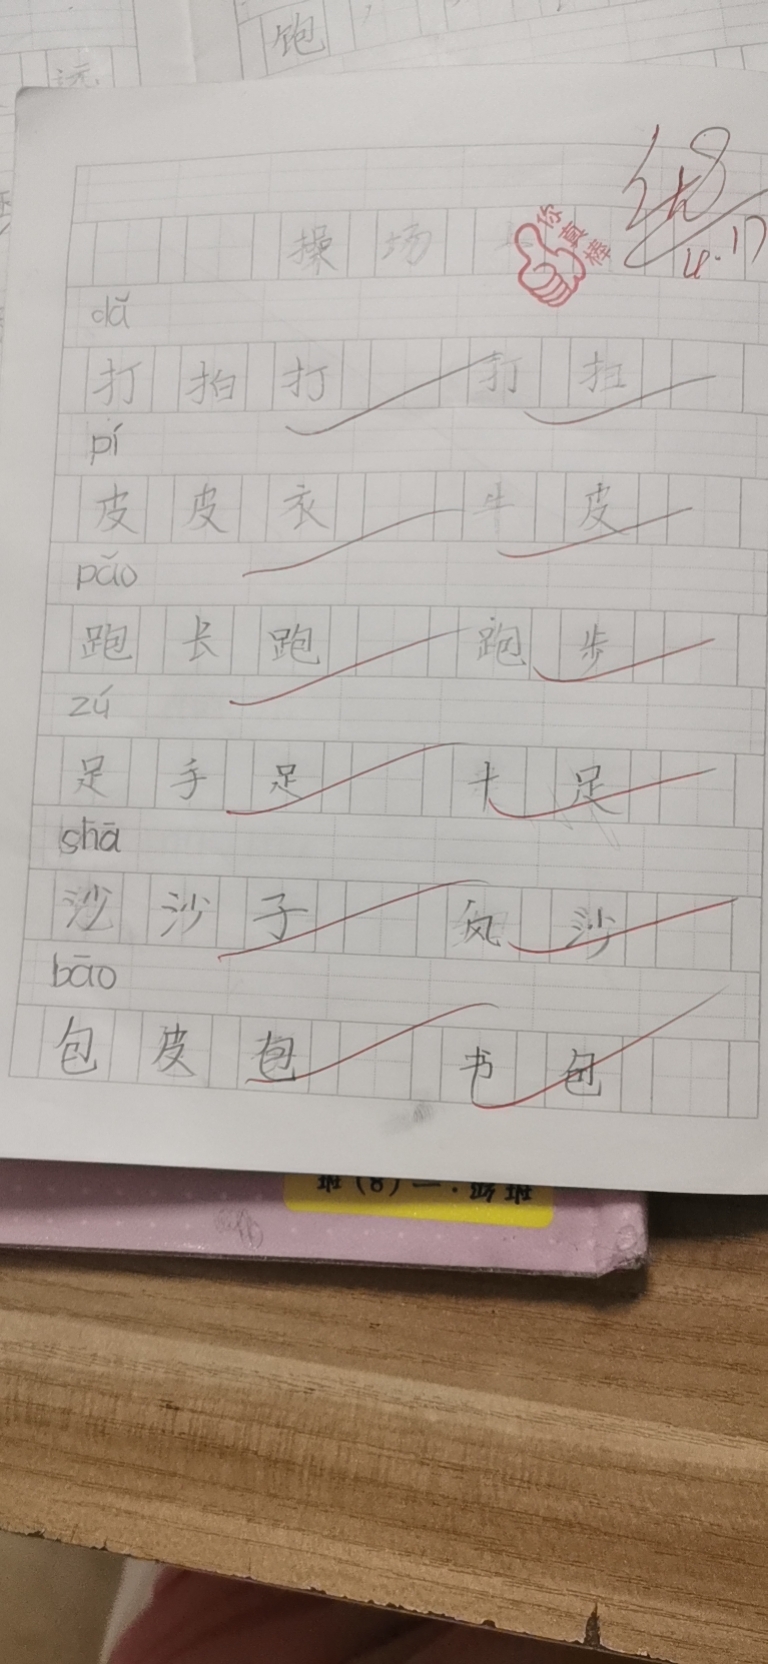 饱
操 场
你真棒
4.17
dǎ
打 拍 打 打 扫
pí
皮 皮 衣 牛 皮
pǎo
跑 长 跑 跑 步
zú
足 手 足 十 足
shā
沙 沙 子 风 沙
bāo
包 皮 包 书 包